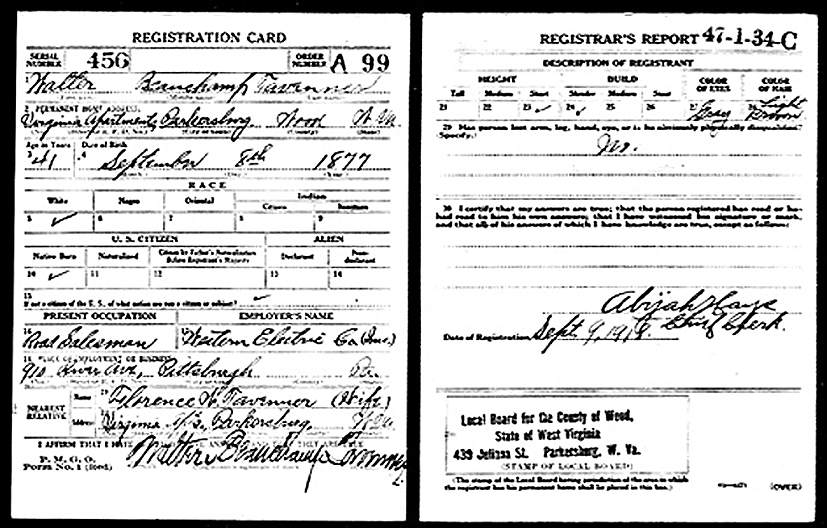 REGISTRATION CARD
SERIAL NUMBER 456 ORDER NUMBER A 99
1 Walter Beauchamp Tavenner
2 PERMANENT HOME ADDRESS
Virginia Apartments, Parkersburg, Wood W. Va
Age in Years Date of Birth
3 41 4 September 8th 1877
RACE
White Negro Oriental Indian
Citizen Noncitizen
5 ✓ 6 7 8 9
U. S. CITIZEN ALIEN
Native Born Naturalized Citizen by Father's Naturalization Before Registrant's Majority Declarant Non-declarant
10 ✓ 11 12 13 14
15 If not a citizen of the U. S., of what nation are you a citizen or subject?
PRESENT OCCUPATION EMPLOYER'S NAME
16 Road Salesman 17 Western Electric Co (Inc.)
18 PLACE OF EMPLOYMENT OR BUSINESS
910 River Ave, Pittsburgh Pa.
NEAREST RELATIVE Name 19 Florence W. Tavenner (Wife)
Address Virginia Parkersburg, W. Va
I AFFIRM THAT I HAVE
P. M. G. O.
Form No. 1 (Red) Walter Beauchamp Tavenner
REGISTRAR'S REPORT 47-1-34-C
DESCRIPTION OF REGISTRANT
HEIGHT BUILD COLOR OF EYES COLOR OF HAIR
Tall Medium Short Slender Medium Stout
21 22 23 ✓ 24 ✓ 25 26 27 Gray 28 Light Brown
29 Has person lost arm, leg, hand, eye, or is he obviously physically disqualified?
Specify. No.
30 I certify that my answers are true; that the person registered has read or has
had read to him his own answers; that I have witnessed his signature or mark,
and that all of his answers of which I have knowledge are true, except as follows:
Abijah Hays
Date of Registration Sept. 9, 1918. Chief Clerk.
Local Board for the County of Wood,
State of West Virginia
439 Juliana St. Parkersburg, W. Va.
(STAMP OF LOCAL BOARD)
(The stamp of the Local Board having jurisdiction of the area in which
the registrant has his permanent home shall be placed in this box.)
(OVER)